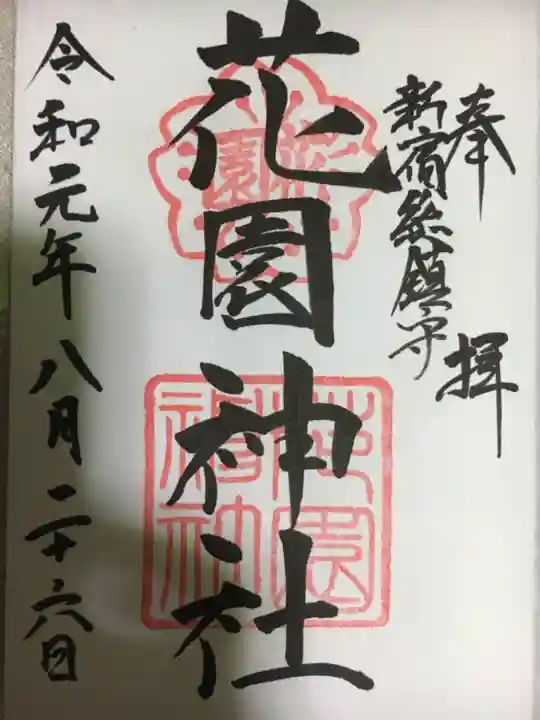 奉拝
新宿総鎮守
花園神社
花園
花園神社
令和元年八月二十六日